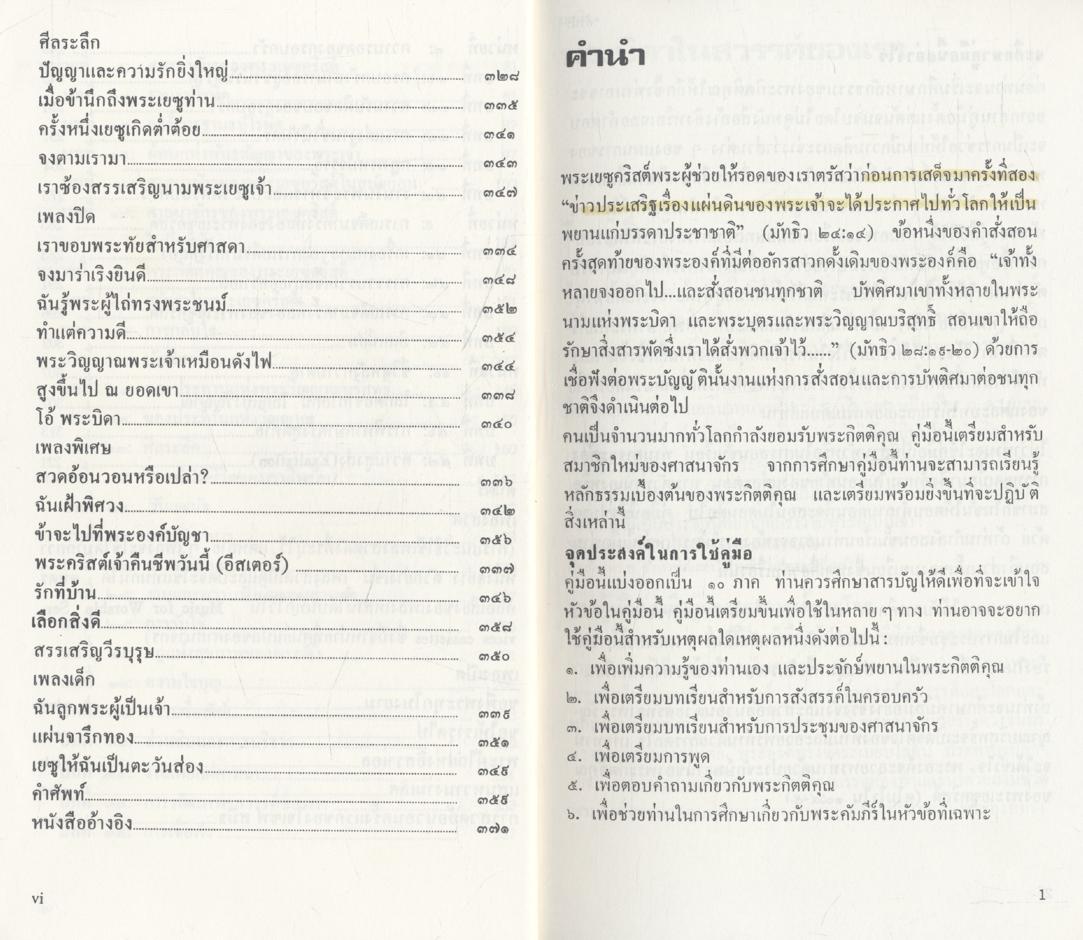 ศีลระลึก
ปัญญาและความรักยิ่งใหญ่ ๓๒๘
เมื่อข้านึกถึงพระเยซูท่าน ๓๓๕
ครั้งหนึ่งเยซูเกิดต่ำต้อย ๓๔๑
จงตามเรามา ๓๔๓
เราซ้องสรรเสริญนามพระเยซูเจ้า ๓๔๗
เพลงปิด
เราขอบพระทัยสำหรับศาสดา ๓๓๔
จงมาร่าเริงยินดี ๓๔๘
ฉันรู้พระผู้ไถ่ทรงพระชนม์ ๓๕๒
ทำแต่ความดี ๓๕๔
พระวิญญาณพระเจ้าเหมือนดังไฟ ๓๔๔
สูงขึ้นไป ณ ยอดเขา ๓๓๘
โอ้ พระบิดา ๓๔๐
เพลงพิเศษ
สวดอ้อนวอนหรือเปล่า? ๓๓๖
ฉันเฝ้าพิศวง ๓๔๒
ข้าจะไปที่พระองค์บัญชา ๓๕๖
พระคริสต์เจ้าคืนชีพวันนี้ (อีสเตอร์) ๓๓๗
รักที่บ้าน ๓๔๖
เลือกสิ่งดี ๓๕๘
สรรเสริญวีรบุรุษ ๓๕๐
เพลงเด็ก
ฉันลูกพระผู้เป็นเจ้า ๓๓๙
แผ่นจารึกทอง ๓๕๑
เยซูให้ฉันเป็นตะวันส่อง ๓๔๙
คำศัพท์ ๓๕๙
หนังสืออ้างอิง ๓๗๑
vi
คำนำ
พระเยซูคริสต์พระผู้ช่วยให้รอดของเราตรัสว่าก่อนการเสด็จมาครั้งที่สอง
“ข่าวประเสริฐเรื่องแผ่นดินของพระเจ้าจะได้ประกาศไปทั่วโลกให้เป็น
พยานแก่บรรดาประชาชาติ” (มัทธิว ๒๔:๑๔) ข้อหนึ่งของคำสั่งสอน
ครั้งสุดท้ายของพระองค์ที่มีต่ออัครสาวกดั้งเดิมของพระองค์คือ “เจ้าทั้ง
หลายจงออกไป...และสั่งสอนชนทุกชาติ บัพติศมาเขาทั้งหลายในพระ
นามแห่งพระบิดา และพระบุตรและพระวิญญาณบริสุทธิ์ สอนเขาให้ถือ
รักษาสิ่งสารพัดซึ่งเราได้สั่งพวกเจ้าไว้......” (มัทธิว ๒๘:๑๙-๒๐) ด้วยการ
เชื่อฟังต่อพระบัญญัตินั้นงานแห่งการสั่งสอนและการบัพติศมาต่อชนทุก
ชาติจึงดำเนินต่อไป
คนเป็นจำนวนมากทั่วโลกกำลังยอมรับพระกิตติคุณ คู่มือนี้เตรียมสำหรับ
สมาชิกใหม่ของศาสนาจักร จากการศึกษาคู่มือนี้ท่านจะสามารถเรียนรู้
หลักธรรมเบื้องต้นของพระกิตติคุณ และเตรียมพร้อมยิ่งขึ้นที่จะปฏิบัติ
สิ่งเหล่านี้
จุดประสงค์ในการใช้คู่มือ
คู่มือนี้แบ่งออกเป็น ๑๐ ภาค ท่านควรศึกษาสารบัญให้ดีเพื่อที่จะเข้าใจ
หัวข้อในคู่มือนี้ คู่มือนี้เตรียมขึ้นเพื่อใช้ในหลาย ๆ ทาง ท่านอาจจะอยาก
ใช้คู่มือนี้สำหรับเหตุผลใดเหตุผลหนึ่งดังต่อไปนี้ :
๑. เพื่อเพิ่มความรู้ของท่านเอง และประจักษ์พยานในพระกิตติคุณ
๒. เพื่อเตรียมบทเรียนสำหรับการสังสรรค์ในครอบครัว
๓. เพื่อเตรียมบทเรียนสำหรับการประชุมของศาสนาจักร
๔. เพื่อเตรียมการพูด
๕. เพื่อตอบคำถามเกี่ยวกับพระกิตติคุณ
๖. เพื่อช่วยท่านในการศึกษาเกี่ยวกับพระคัมภีร์ในหัวข้อที่เฉพาะ
1